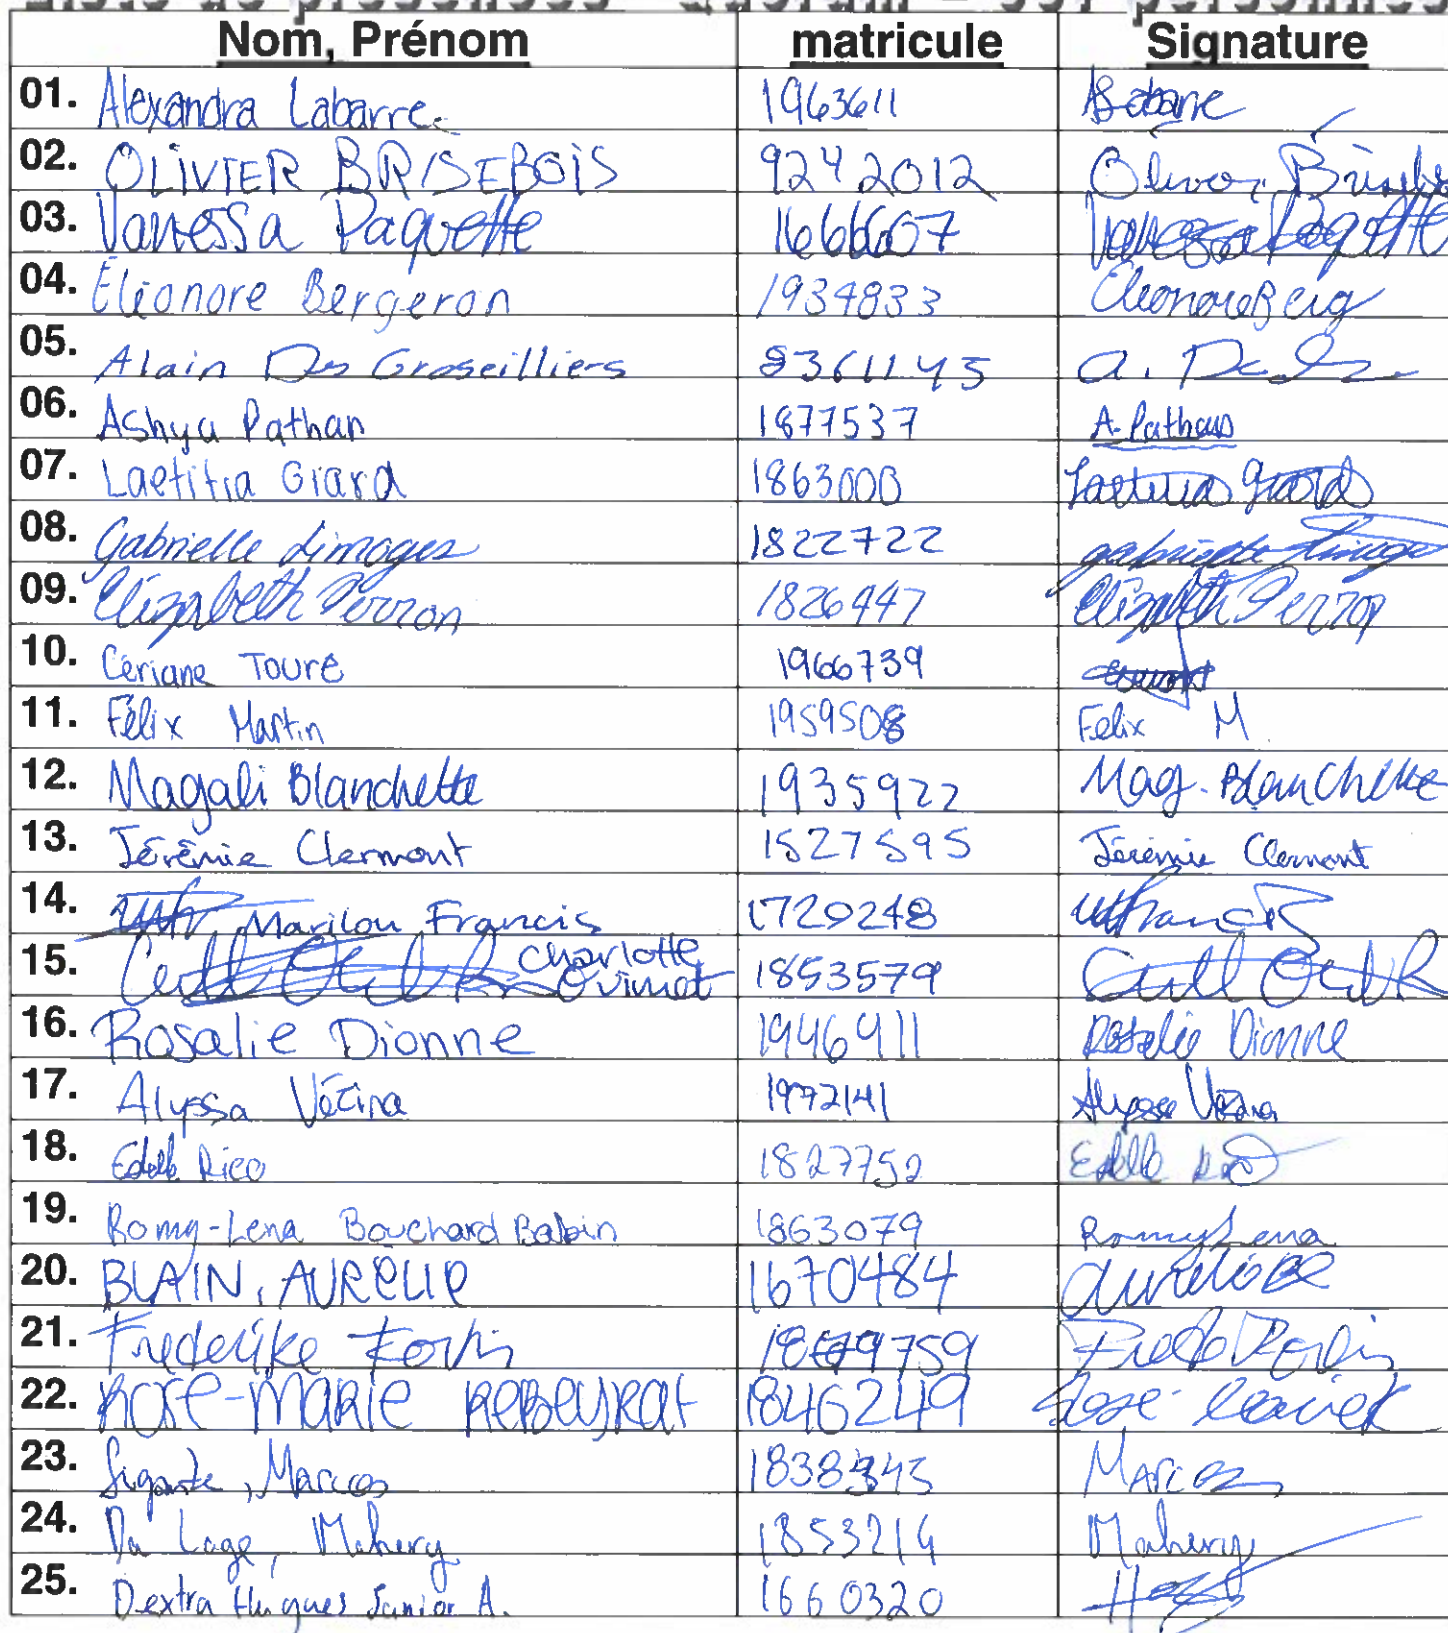 Liste de présences - quorum = 357 personnes
Nom, Prénom matricule Signature
01. Alexandra Labarre 1963611 ALabarre
02. OLIVIER BRISEBOIS 9242012 Olivier Briseb
03. Vanessa Paquette 1666607 Vanessa Paquette
04. Éléonore Bergeron 1934833 Eleonore Berg
05. Alain Des Groseilliers 8361145 a. De
06. Ashya Pathan 1877537 A. Pathan
07. Laetitia Giard 1863000 Laetitia Giard
08. Gabrielle Limoges 1822722 gabrielle limoges
09. Elizabeth Perron 1826447 Elizabeth Perron
10. Cériane Touré 1966739
11. Félix Martin 1959508 Félix M
12. Magali Blanchette 1935922 Mag. Blanchette
13. Jérémie Clermont 1527595 Jérémie Clermont
14. Marilou Francis 1720248 Francis
15. Charlotte Ouimet 1853579
16. Rosalie Dionne 1946911 Rosalie Dionne
17. Alyssa Vézina 1972141 Alyssa Vézina
18. Edelle Rico 1827752 Edelle Rico
19. Romy-Lena Bouchard Babin 1863079 RomyLena
20. BLAIN, AURÉLIE 1670484 Aurélie B
21. Frédérike Fortin 1879759 Fred Fortin
22. ROSE-MARIE REBEYRAT 1846249 Rose-
23. Marcos 1838343 Marcos
24. Da Lage, Mahery 1853214 Mahery
25. Dextra Hugues Junior A. 1660320